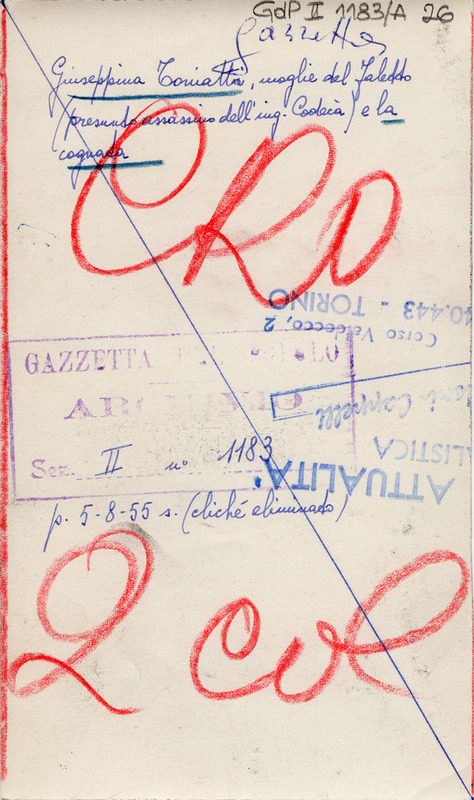 GdP II 1183/A 26
Gazzetta
Giuseppina Toniatti, moglie del Faletto
(presunto assassino dell'ing. Codecà) e la
cognata
CRO
40.443 - TORINO
Corso Valdocco, 2
Cappelli
ALISTICA
ATTUALITA'
GAZZETTA DEL POPOLO
ARCHIVIO
Sez. II n° 1183
p. 5-8-55 s. (cliché eliminato)
2 col